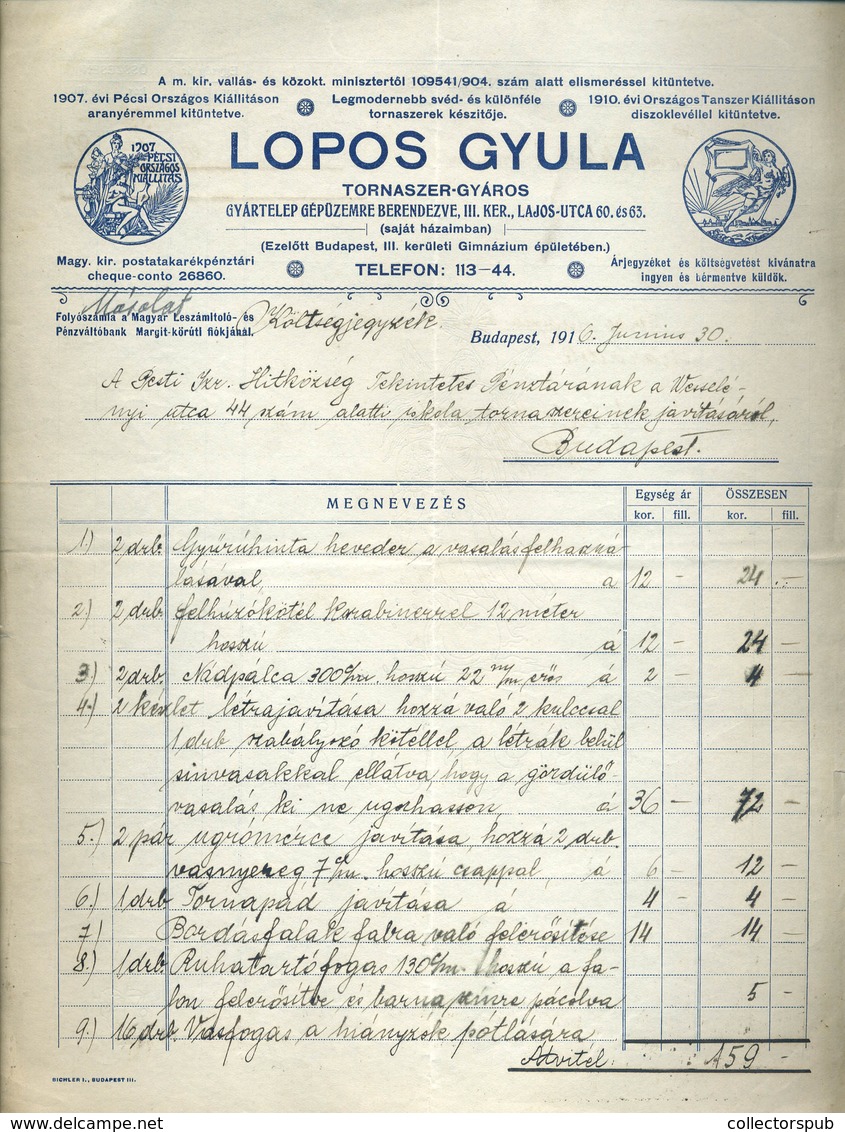 A m. kir. vallás- és közokt. minisztertől 109541/904. szám alatt elismeréssel kitüntetve.
1907. évi Pécsi Országos Kiállitáson
aranyéremmel kitüntetve.
Legmodernebb svéd- és különféle
tornaszerek készitője.
1910. évi Országos Tanszer Kiállitáson
diszoklevéllel kitüntetve.
1907
PÉCSI
ORSZÁGOS
KIÁLLITÁS
LOPOS GYULA
TORNASZER-GYÁROS
GYÁRTELEP GÉPÜZEMRE BERENDEZVE, III. KER., LAJOS-UTCA 60. és 63.
(saját házaimban)
(Ezelőtt Budapest, III. kerületi Gimnázium épületében.)
Magy. kir. postatakarékpénztári
cheque-conto 26860.
TELEFON: 113—44.
Árjegyzéket és költségvetést kivánatra
ingyen és bérmentve küldök.
Másolat
Folyószámla a Magyar Leszámitoló- és
Pénzváltóbank Margit-körúti fiókjánál.
Költségjegyzék.
Budapest, 1916. Junius 30.
A Pesti Izr. Hitközség Tekintetes Pénztárának a Wesselé-
nyi utca 44 szám alatti iskola tornaszereinek javitásáról,
Budapest.
MEGNEVEZÉS Egység ár ÖSSZESEN
kor. fill. kor. fill.
1.) 2 drb Gyűrűhinta heveder, a vasalás felhaszná
lásával a 12 — 24 . —
2.) 2 drb felhúzókötél karabinerrel 12 méter
hosszú á 12 — 24 —
3.) 2 drb. Nádpálca 300 c/m. hosszú 22 m/m erős á 2 — 4 —
4.) 2 készlet létrajavitása hozzá való 2 kulccsal
1 drb szabályozó kötéllel a létrák belül
sinvasakkal ellátva, hogy a gördülő-
vasalás, ki ne ugorhasson, á 36 — 72 —
5.) 2 pár ugrómérce javitása, hozzá 2 drb.
vasnyereg, 7 c/m. hosszú csappal á 6 — 12 —
6.) 1 drb Tornapad javitása á 4 — 4 —
7.) Bordásfalak falra való felerősitése 14 14 —
8.) 1 drb. Ruhatartófogas 130 c/m. hosszú a fa-
lon felerősitve és barna szinre pácolva 5 —
9.) 16 drb. Vasfogas a hiányzók pótlására
Átvitel: 159 —
BICHLER I., BUDAPEST III.
delcampe.net
collectorspub